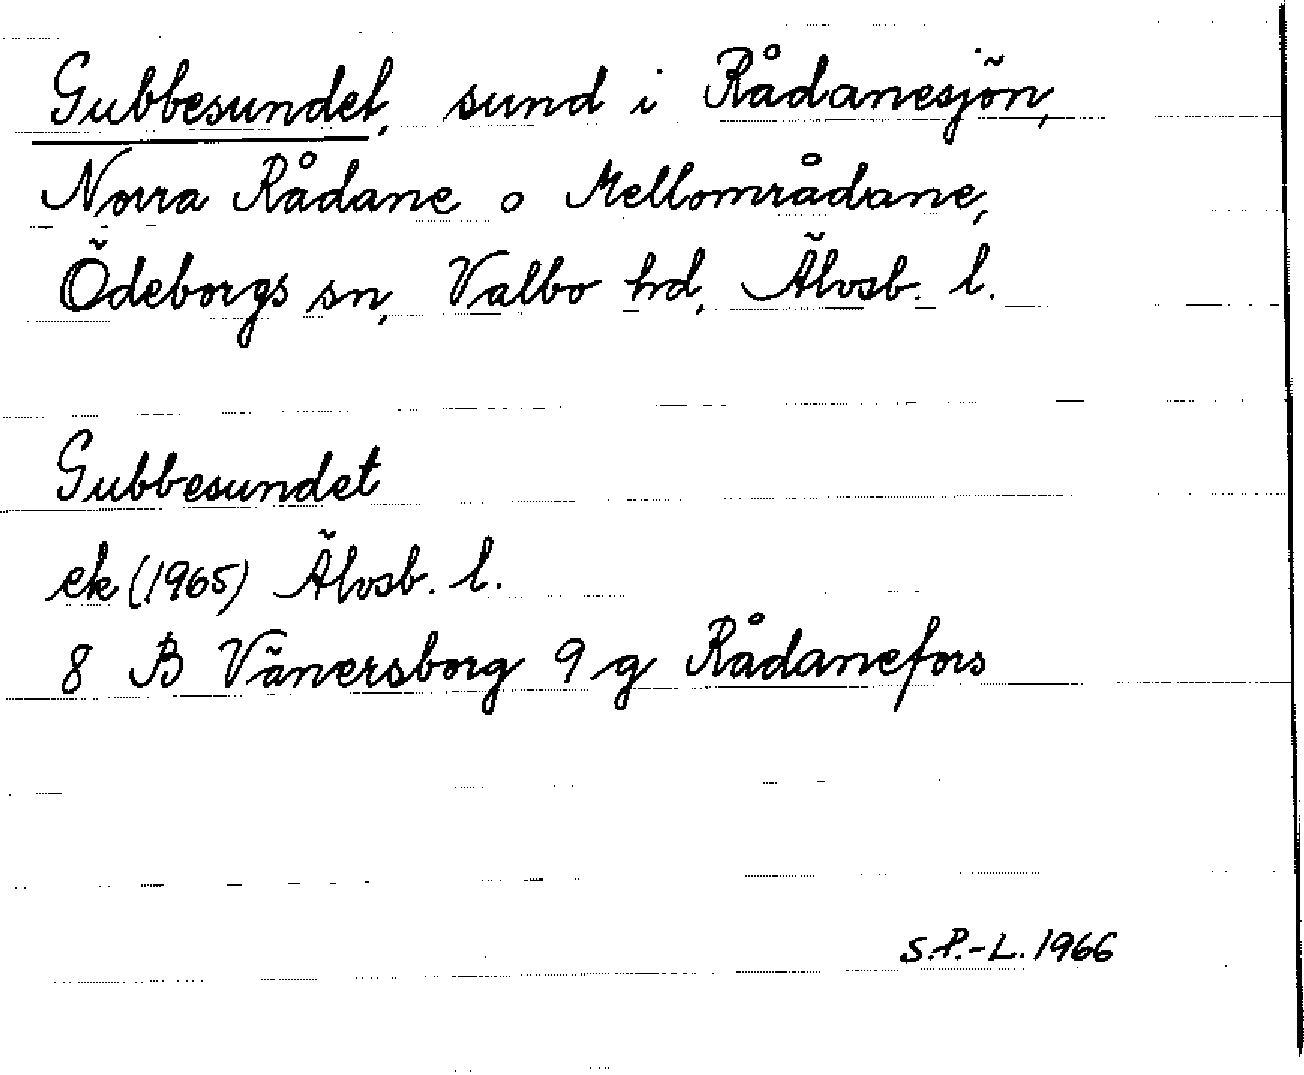 Gubbesundet, sund i Rådanesjön,
Norra Rådane o Mellområdane,
Ödeborgs sn, Valbo hd, Älvsb. l.
Gubbesundet
ek (1965) Älvsb. l.
8 B Vänersborg 9 g Rådanefors
S.P.-L. 1966